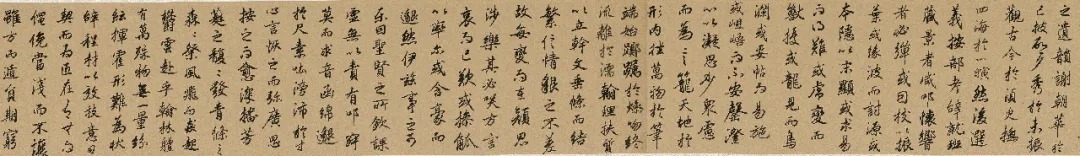 之遺韻謝朝華於
已披啟夕秀於未振
觀古今於須臾撫
四海於一瞬然後選
義按部考辭就班
藏景者咸叩懷響
者必彈或因枝以振
葉或緣波而討源或
本隱以末顯或求易
而得難或虎變而
獸擾或龍見而鳥
瀾或妥帖而易施
或岨峿而不安罄澄
心以凝思眇衆慮
而爲言籠天地於
形内挫萬物於筆
端始躑躅於燥吻終
流離於濡翰理扶質
以立幹文垂條而結
繁信情貌之不差
故每變而在顏思
涉樂其必笑方言
哀而已歎或操觚
以率爾或含豪而
邈然伊兹事之可
樂固聖賢之所欽課
虛無以責有叩寂
莫而求音函綿邈
於尺素吐滂沛於寸
心言恢之而彌廣思
按之而愈深播芳
蕤之馥々發青條之
森々粲風飛而猋起
鬱雲起乎翰林體
有萬殊物無一量紛
紜揮霍形難爲狀
辭程材以效伎意司
契而爲匠在有無而
僶俛當淺而不讓
雖方而遁員期窮